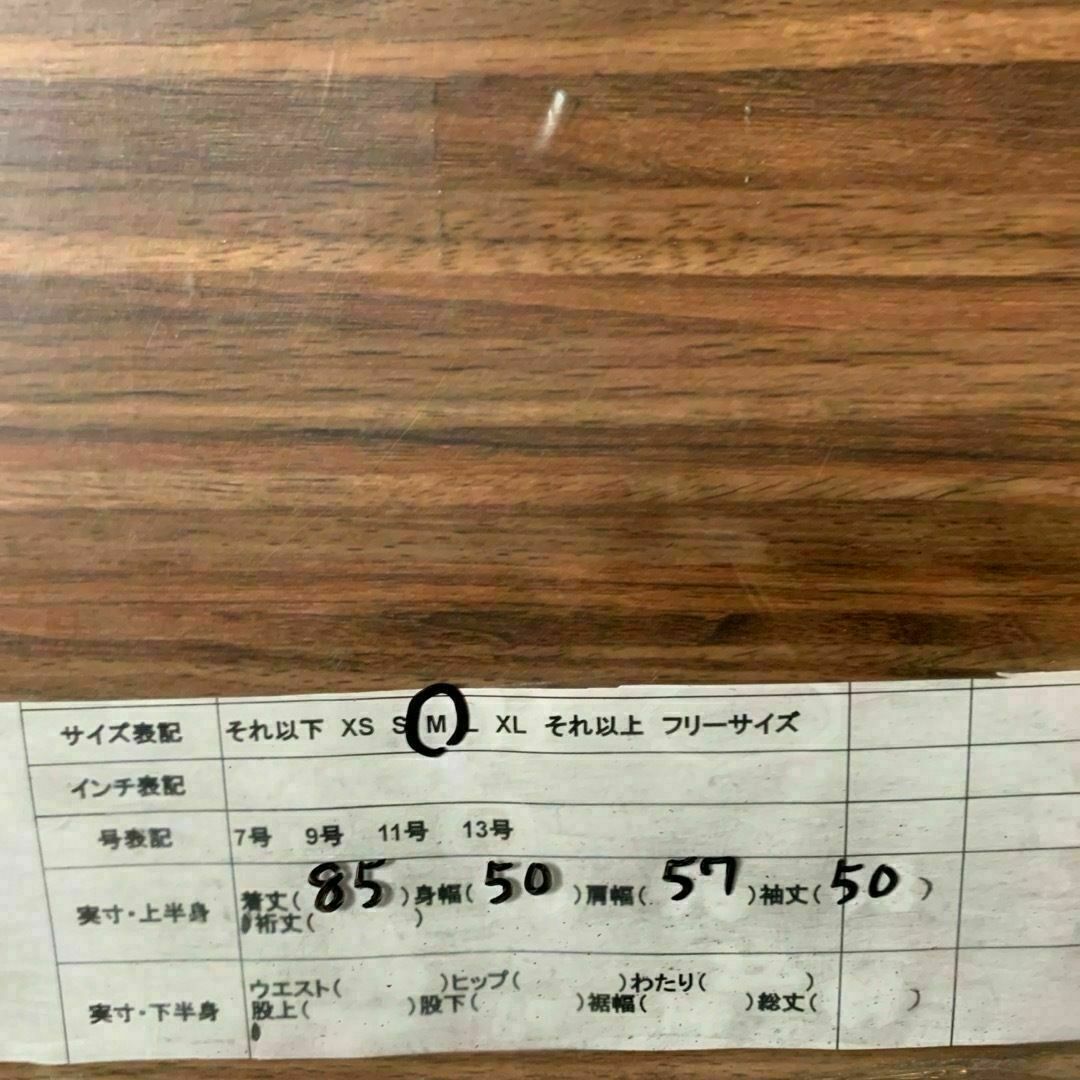 サイズ表記 それ以下 XS S M L XL それ以上 フリーサイズ
インチ表記
号表記 7号 9号 11号 13号
実寸・上半身 着丈( 85 )身幅( 50 )肩幅( 57 )袖丈( 50 )
裄丈( )
実寸・下半身 ウエスト( )ヒップ( )わたり( )
股上( )股下( )裾幅( )総丈( )